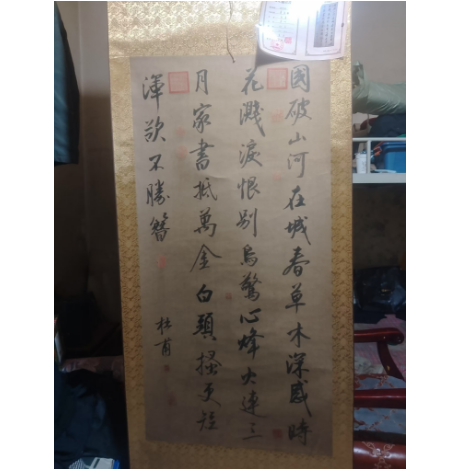 國破山河在城春草木深感時
花濺淚恨別鳥驚心烽火連三
月家書抵萬金白頭搔更短
渾欲不勝簪
杜甫